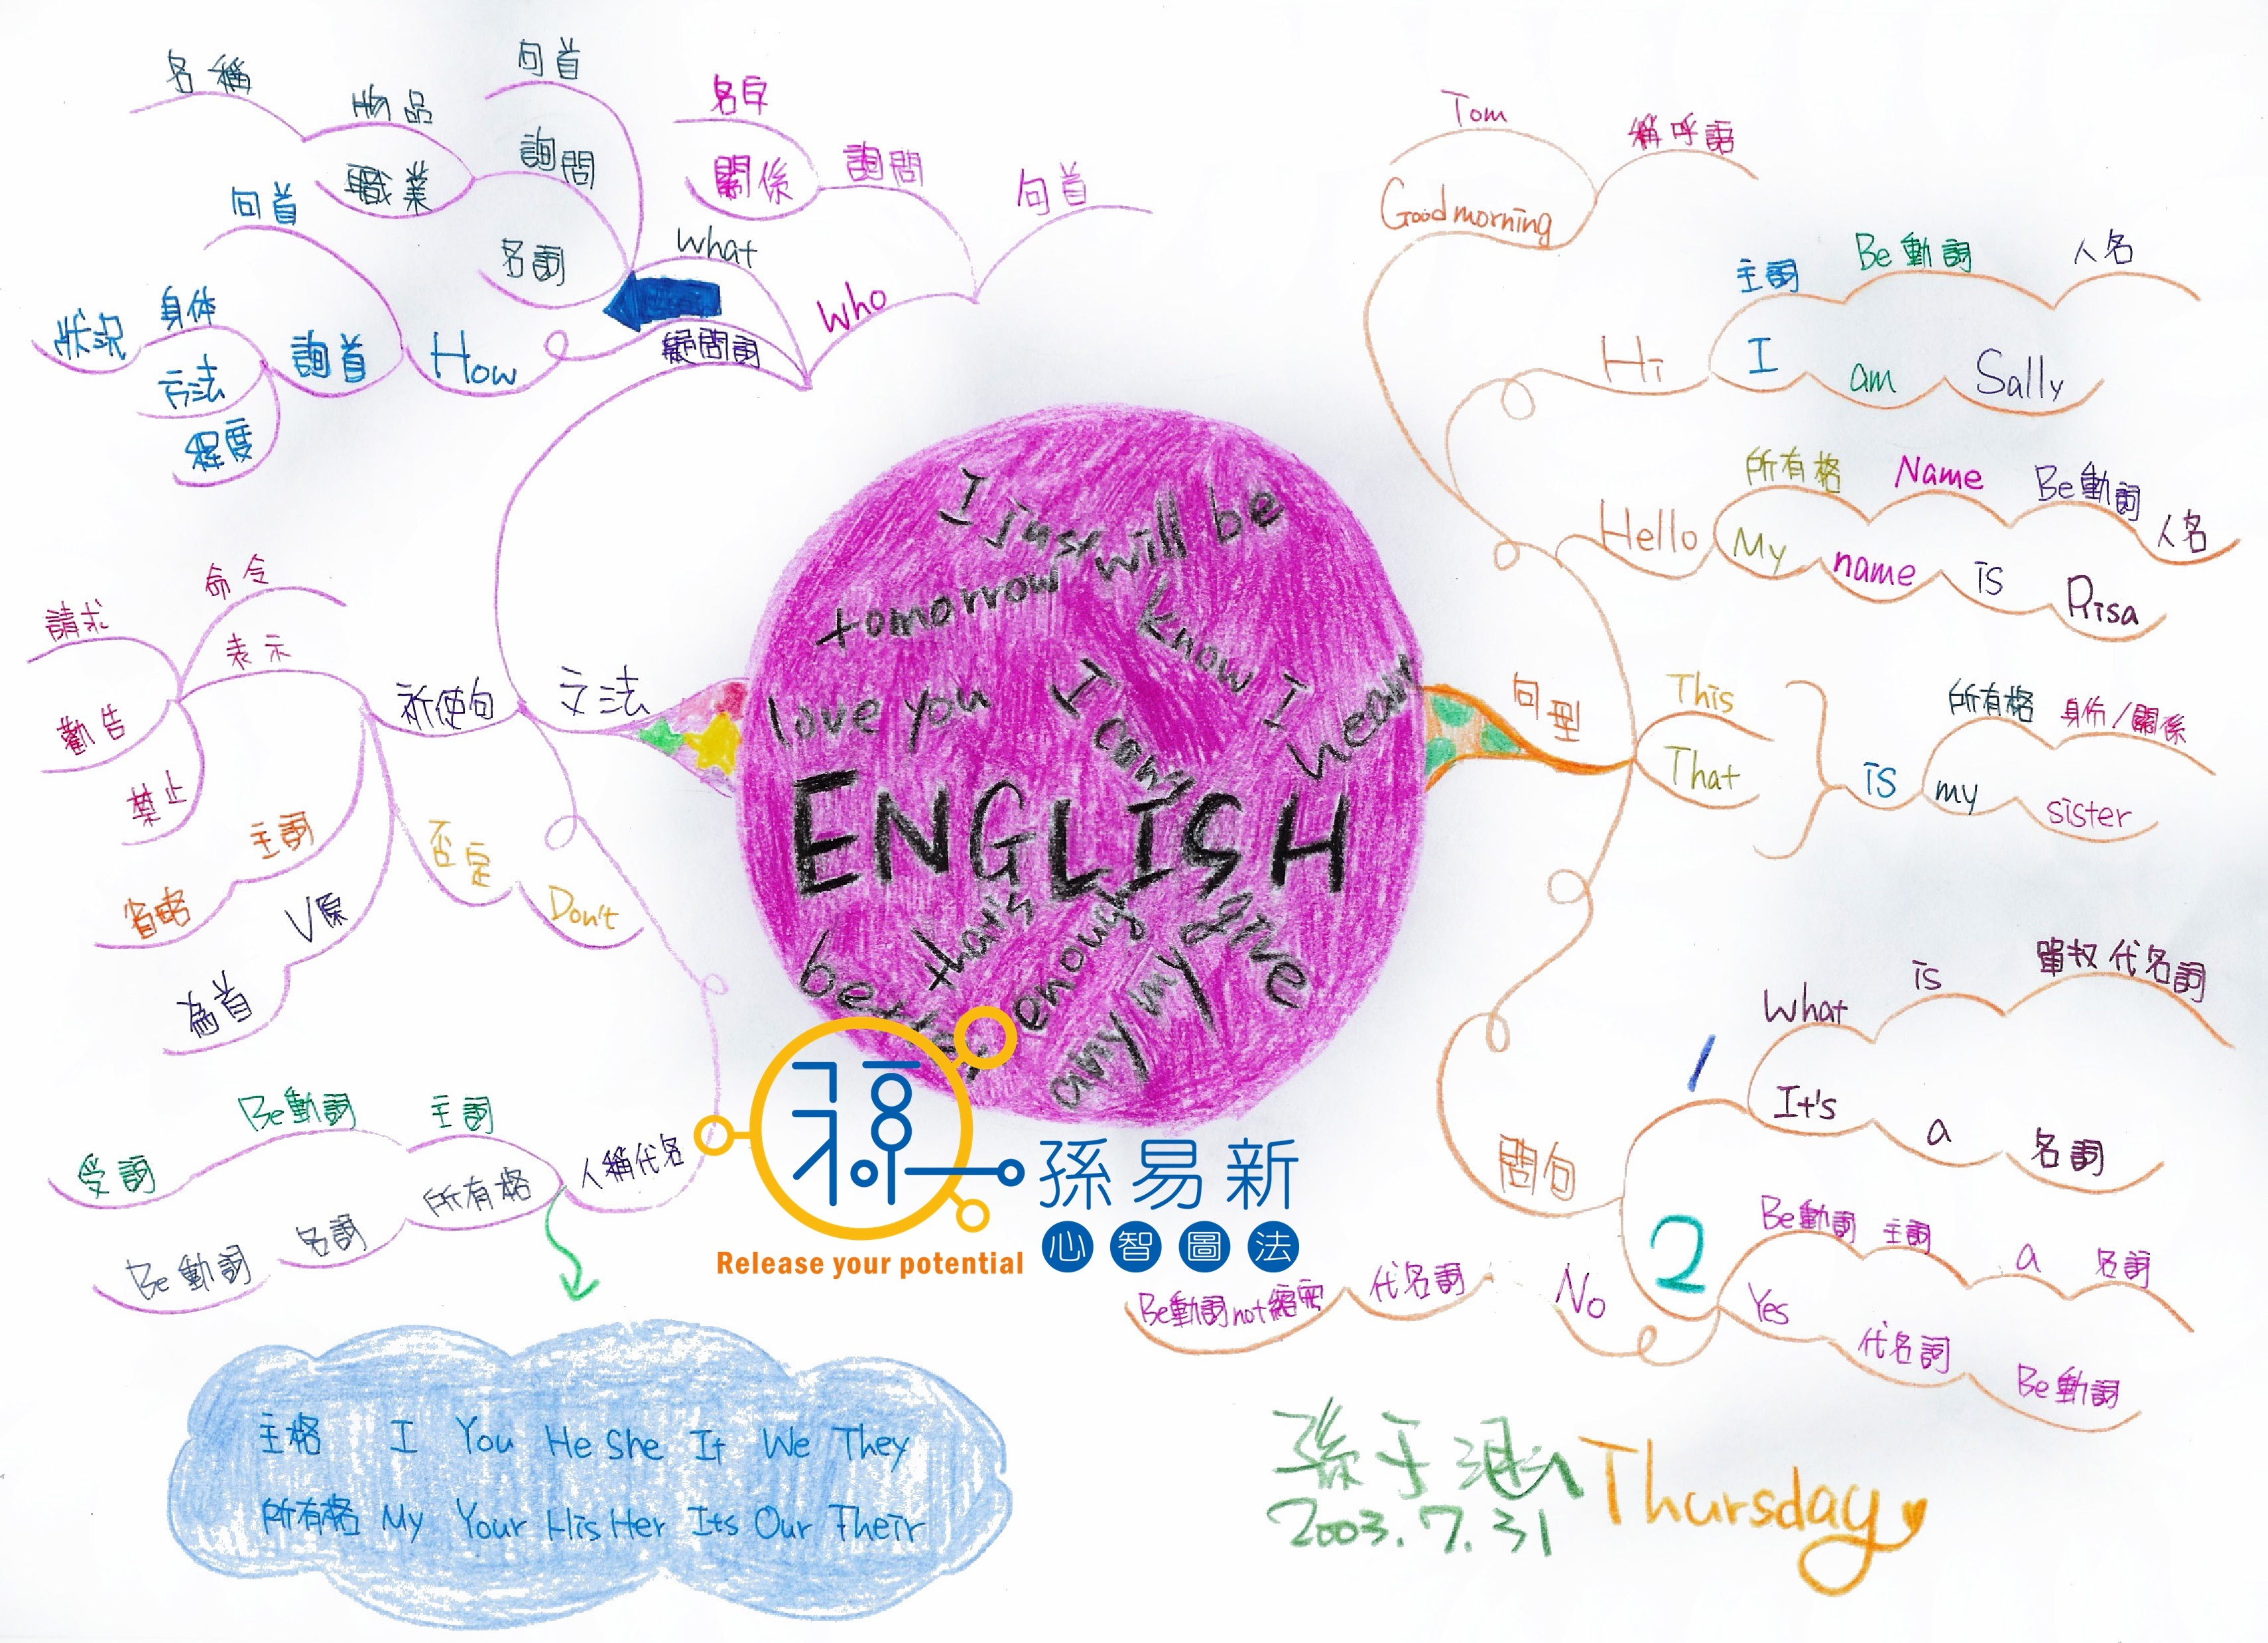 句首
名稱
物品
詢問
職業
名詞
what
名字
關係
詢問
句首
Who
疑問詞
句首
How
詢首
身体
狀況
方法
程度
文法
祈使句
命令
表示
請求
勸告
禁止
主詞
省略
V原
為首
否定
Don't
人稱代名
主詞
Be動詞
受詞
所有格
名詞
Be動詞
主格 I You He She It We They
所有格 My Your His Her Its Our Their
I just will be
tomorrow
know I
love you
I can't
hear
ENGLISH
that's
enough
give
any my
孫易新
心智圖法
Release your potential
句型
Tom
稱呼語
Good morning
主詞 Be動詞 人名
Hi I am Sally
所有格 Name Be動詞 人名
Hello My name is Risa
This
That
所有格 身份/關係
is my sister
問句
1
What is 單数代名詞
It's a 名詞
2
Be動詞 主詞 a 名詞
Yes 代名詞 Be動詞
No 代名詞 Be動詞not縮寫
2003.7.31
Thursday